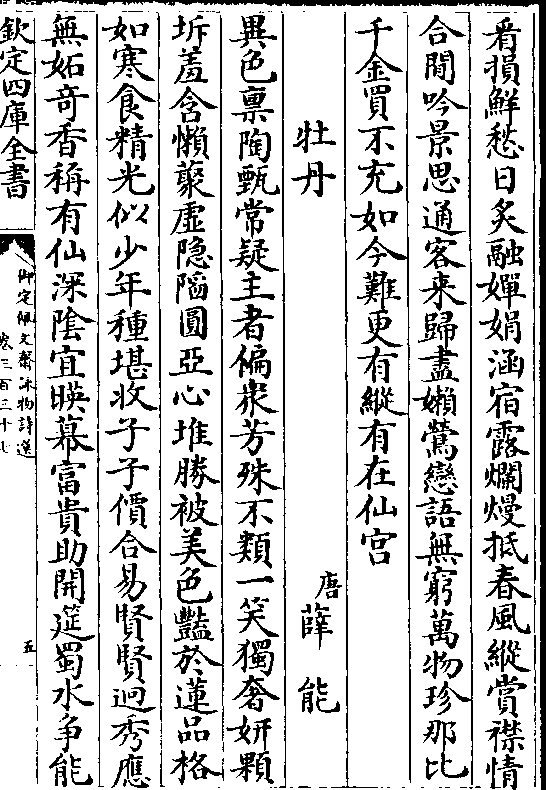 看損鮮愁日炙融嬋娟涵宿露爛熳抵春風縱賞襟情
合閒吟景思通客來歸盡嬾鶯戀語無窮萬物珍那比
千金買不充如今難更有縱有在仙宮
牡丹
唐薛能
異色禀陶甄常疑主者偏衆芳殊不類一笑獨奢妍顆
坼羞含懶藂虛隐陥圓亞心堆勝被美色豔於蓮品格
如寒食精光似少年種堪收子子價合易賢賢迥秀應
無妬奇香稱有仙深陰宜暎幕富貴助開筵蜀水争能
欽定四庫全書
御定佩文齋詠物詩選
卷三百三十七
五